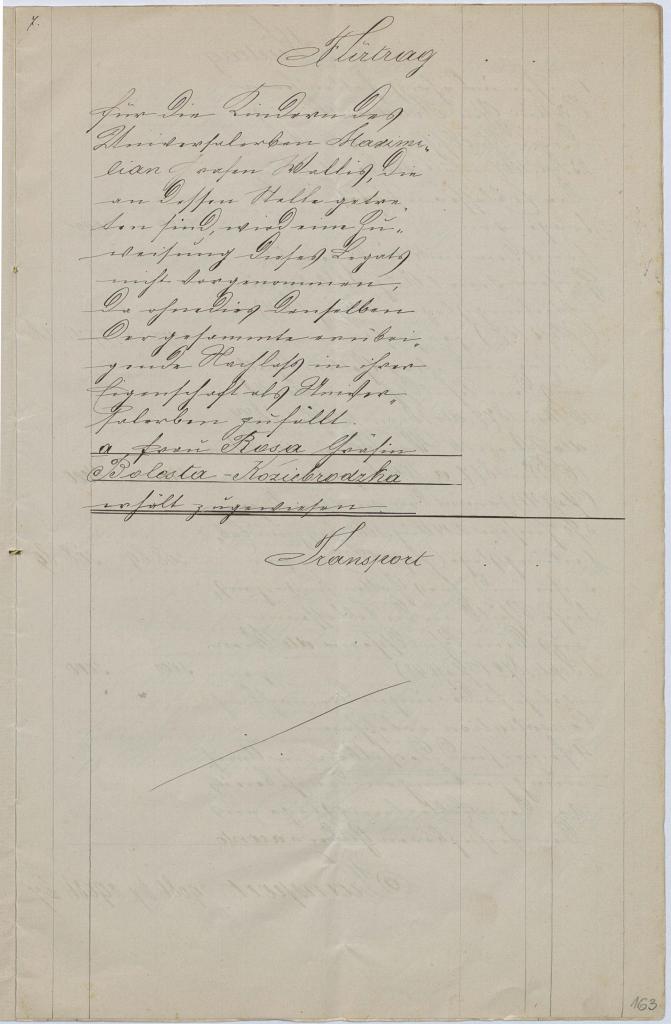 7.
Fürtrag
für die Kindern des
Universalerben Maximi-
lian Grafen Wallis, die
an dessen Stelle getre-
ten sind, wird eine Zu-
weisung dieses Legats
nicht vorgenommen,
da ohnedies denselben
der gesammte erübri-
gende Nachlaß in ihrer
Eigenschaft als Univer-
salerben zufällt.
a, Frau Rosa Gräfin
Bolesta-Koziebrodzka
erhält zugewiesen.
Transport
163